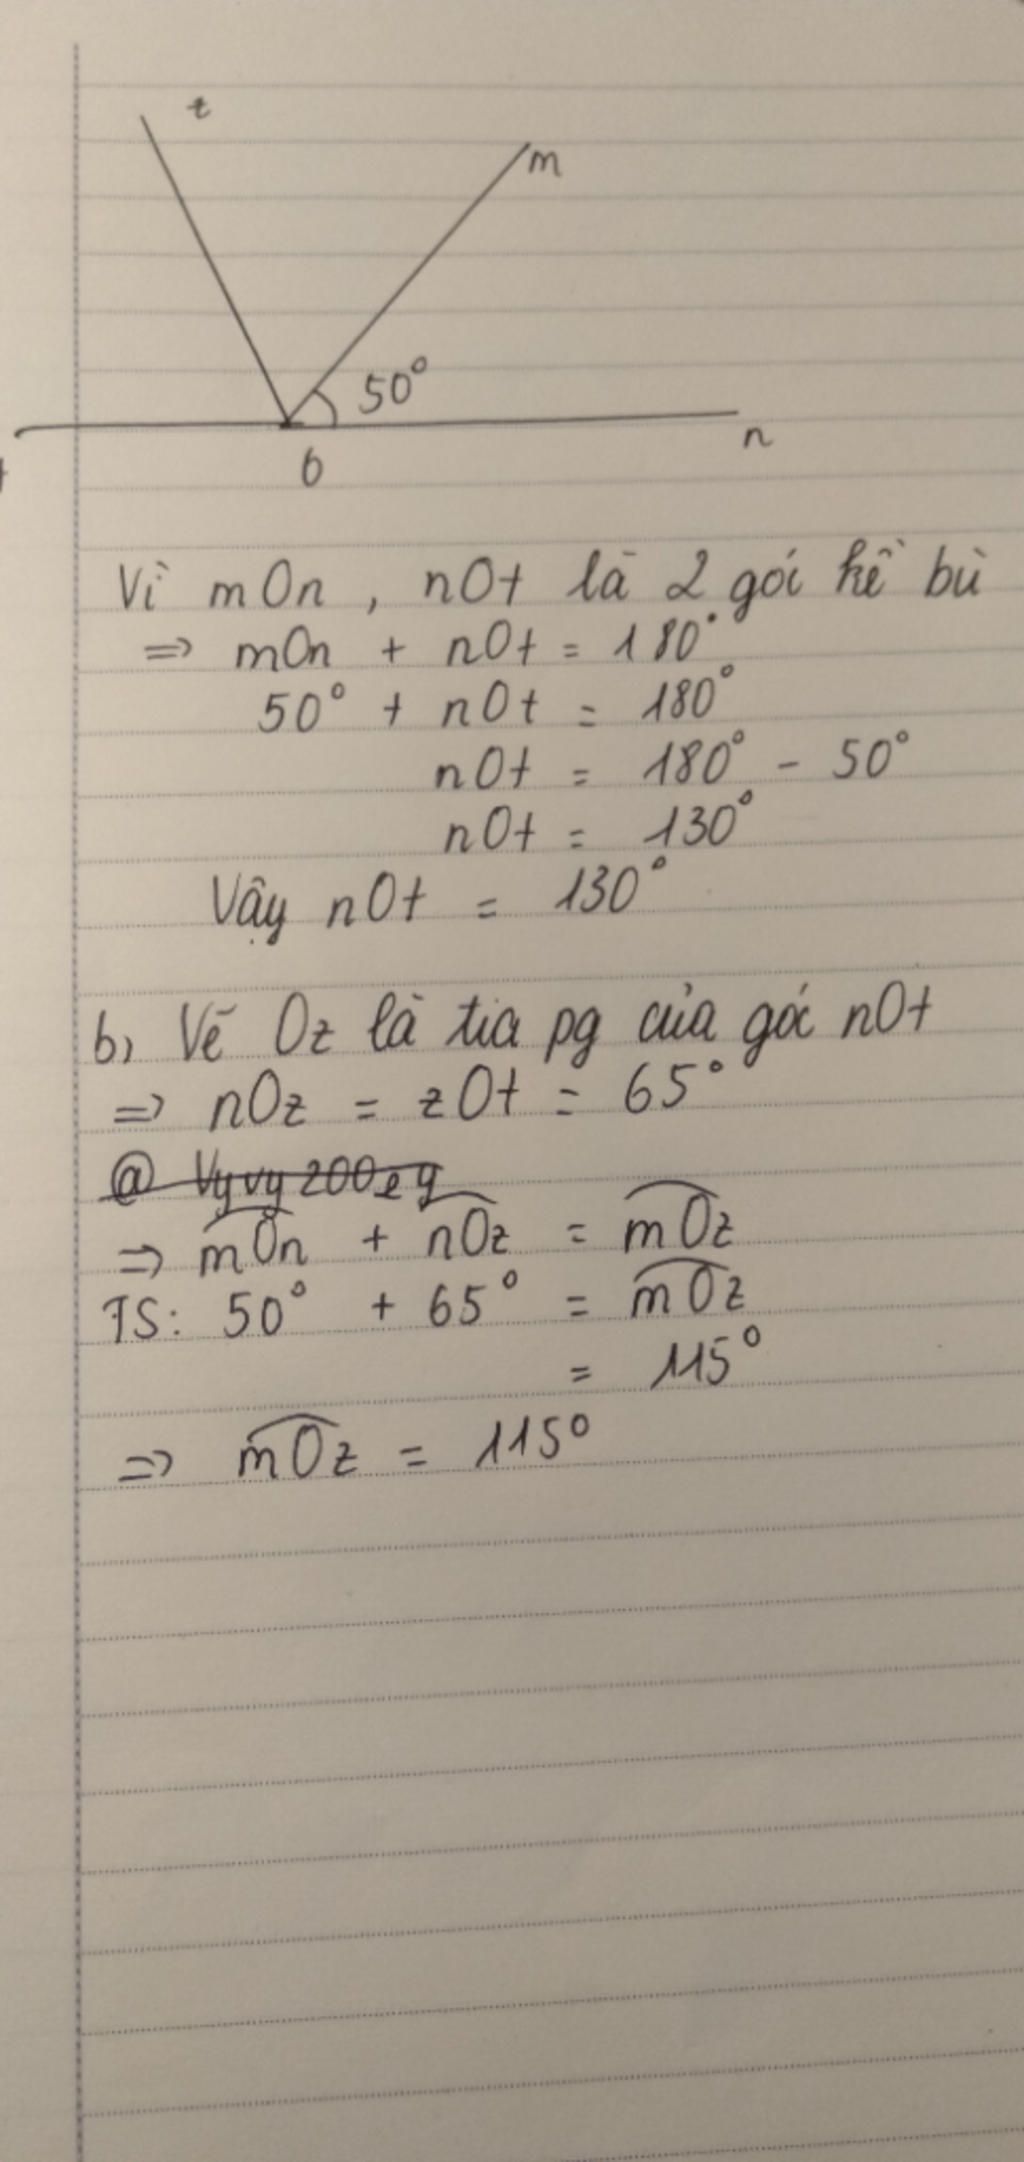 z
m
50°
n
O
Vì mOn, nOt là 2 gói kề bù
=> mOn + nOt = 180°
50° + nOt = 180°
nOt = 180° - 50°
nOt = 130°
Vậy nOt = 130°
b, Vẽ Oz là tia pg của góc nOt
=> nOz = zOt = 65°
@ Vyvy200
=> mOn + nOz = mOz
TS: 50° + 65° = mOz
= 115°
=> mOz = 115°